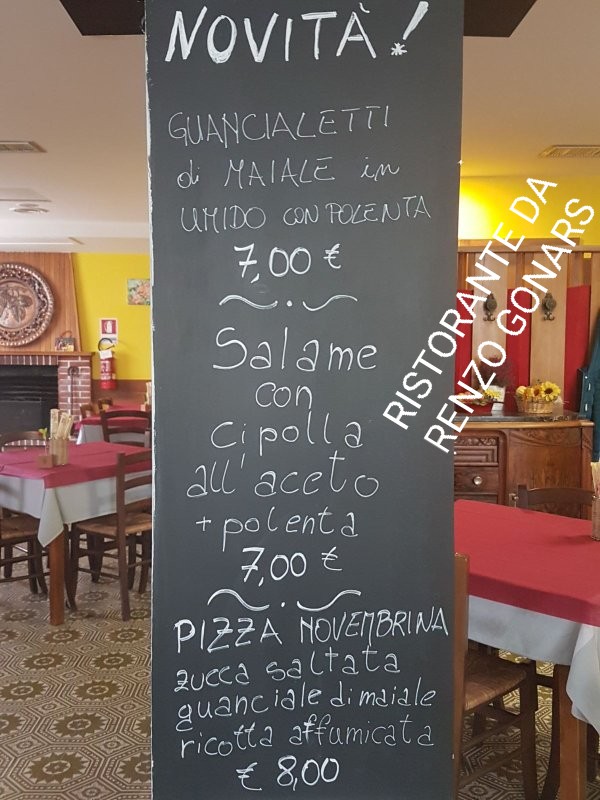 NOVITÀ!
GUANCIALETTI
di MAIALE in
UMIDO CON POLENTA
7,00 €
Salame
con
cipolla
all'aceto
+ polenta
7,00 €
PIZZA NOVEMBRINA
zucca saltata
guanciale di maiale
ricotta affumicata
€ 8,00
RISTORANTE DA
RENZO GONARS